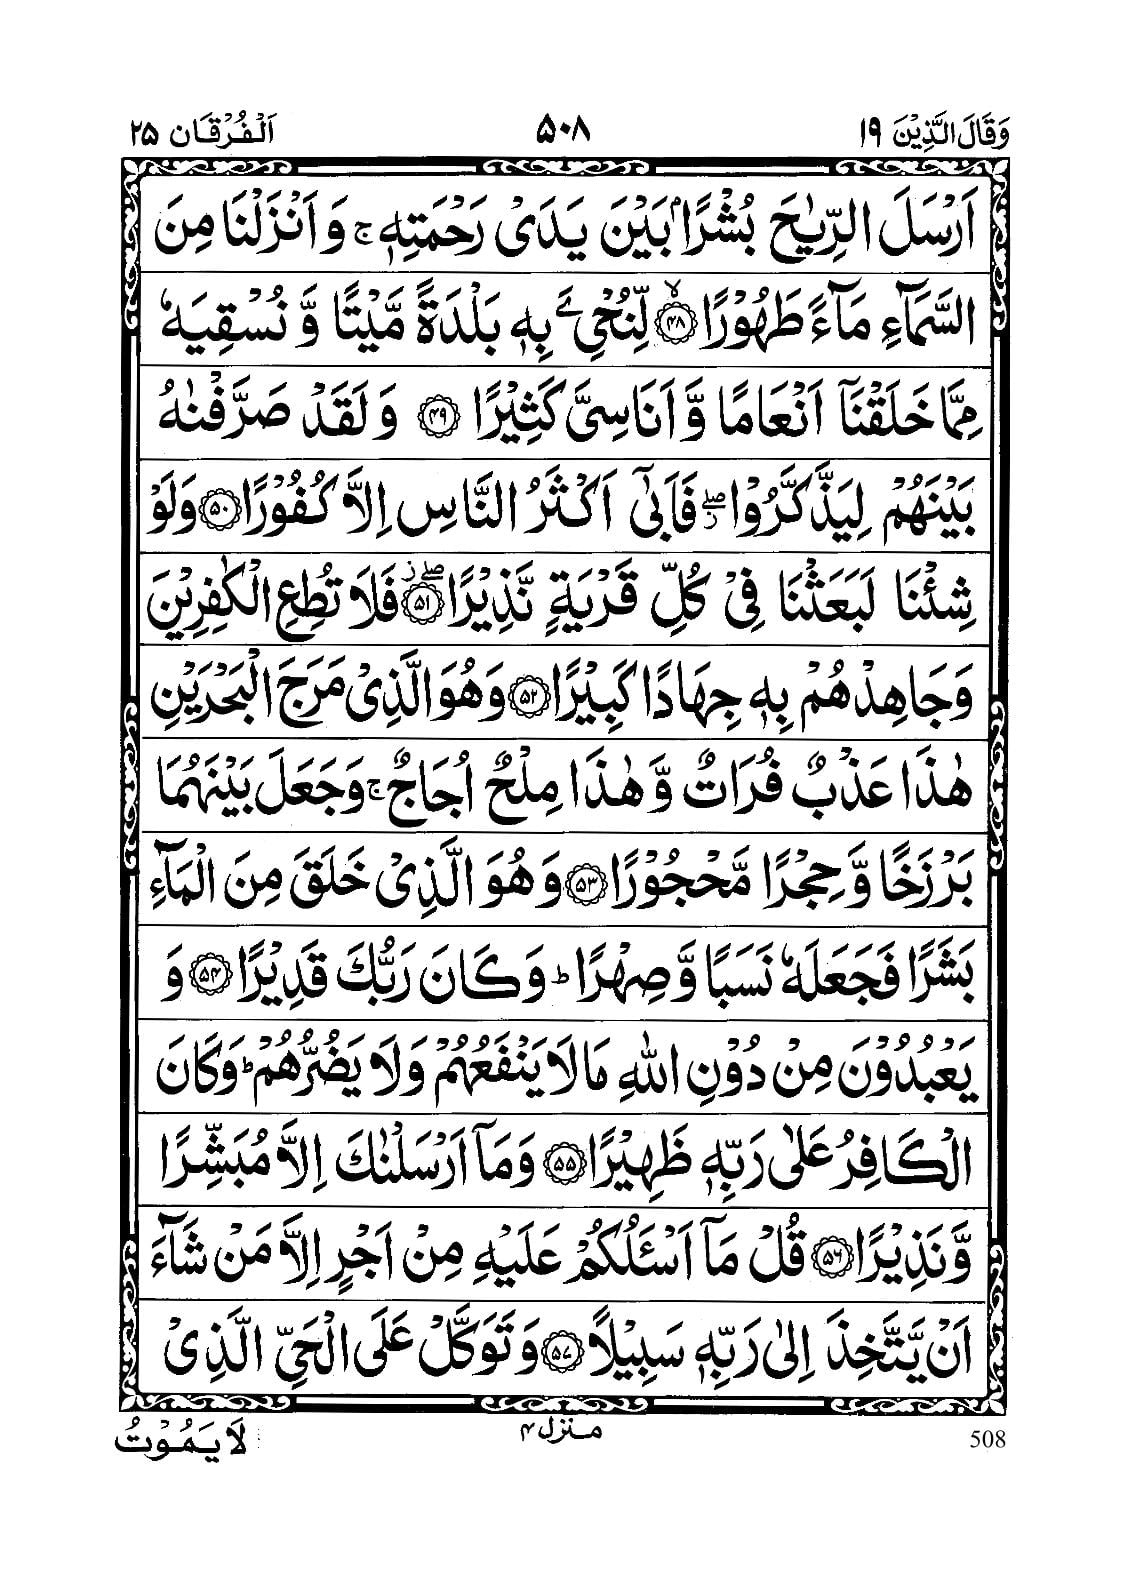 وَقَالَ الَّذِيْنَ ١٩ ۵۰۸ اَلْفُرْقَان ۲۵
اَرْسَلَ الرِّيٰحَ بُشْرًاۢ بَيْنَ يَدَىْ رَحْمَتِهٖ ۚ وَ اَنْزَلْنَا مِنَ
السَّمَآءِ مَآءً طَهُوْرًا ۙ﴿۴۸﴾ لِّنُحْیِۦَ بِهٖ بَلْدَةً مَّيْتًا وَّ نُسْقِيَهٗ
مِمَّا خَلَقْنَاۤ اَنْعَامًا وَّ اَنَاسِىَّ كَثِيْرًا ﴿۴۹﴾ وَ لَقَدْ صَرَّفْنٰهُ
بَيْنَهُمْ لِيَذَّكَّرُوْا ۖ ز فَاَبٰۤى اَكْثَرُ النَّاسِ اِلَّا كُفُوْرًا ﴿۵۰﴾ وَلَوْ
شِئْنَا لَبَعَثْنَا فِىْ كُلِّ قَرْيَةٍ نَّذِيْرًا ۖ ز ﴿۵۱﴾ فَلَا تُطِعِ الْكٰفِرِيْنَ
وَجَاهِدْهُمْ بِهٖ جِهَادًا كَبِيْرًا ﴿۵۲﴾ وَهُوَ الَّذِىْ مَرَجَ الْبَحْرَيْنِ
هٰذَا عَذْبٌ فُرَاتٌ وَّ هٰذَا مِلْحٌ اُجَاجٌ ۚ وَجَعَلَ بَيْنَهُمَا
بَرْزَخًا وَّ حِجْرًا مَّحْجُوْرًا ﴿۵۳﴾ وَهُوَ الَّذِىْ خَلَقَ مِنَ الْمَآءِ
بَشَرًا فَجَعَلَهٗ نَسَبًا وَّ صِهْرًا ؕ وَكَانَ رَبُّكَ قَدِيْرًا ﴿۵۴﴾ وَ
يَعْبُدُوْنَ مِنْ دُوْنِ اللّٰهِ مَا لَا يَنْفَعُهُمْ وَلَا يَضُرُّهُمْ ؕ وَكَانَ
الْكَافِرُ عَلٰى رَبِّهٖ ظَهِيْرًا ﴿۵۵﴾ وَمَاۤ اَرْسَلْنٰكَ اِلَّا مُبَشِّرًا
وَّنَذِيْرًا ﴿۵۶﴾ قُلْ مَاۤ اَسْـَٔلُكُمْ عَلَيْهِ مِنْ اَجْرٍ اِلَّا مَنْ شَآءَ
اَنْ يَّتَّخِذَ اِلٰى رَبِّهٖ سَبِيْلًا ﴿۵۷﴾ وَتَوَكَّلْ عَلَى الْحَىِّ الَّذِىْ
منزل ۴
لَا يَمُوْتُ
508